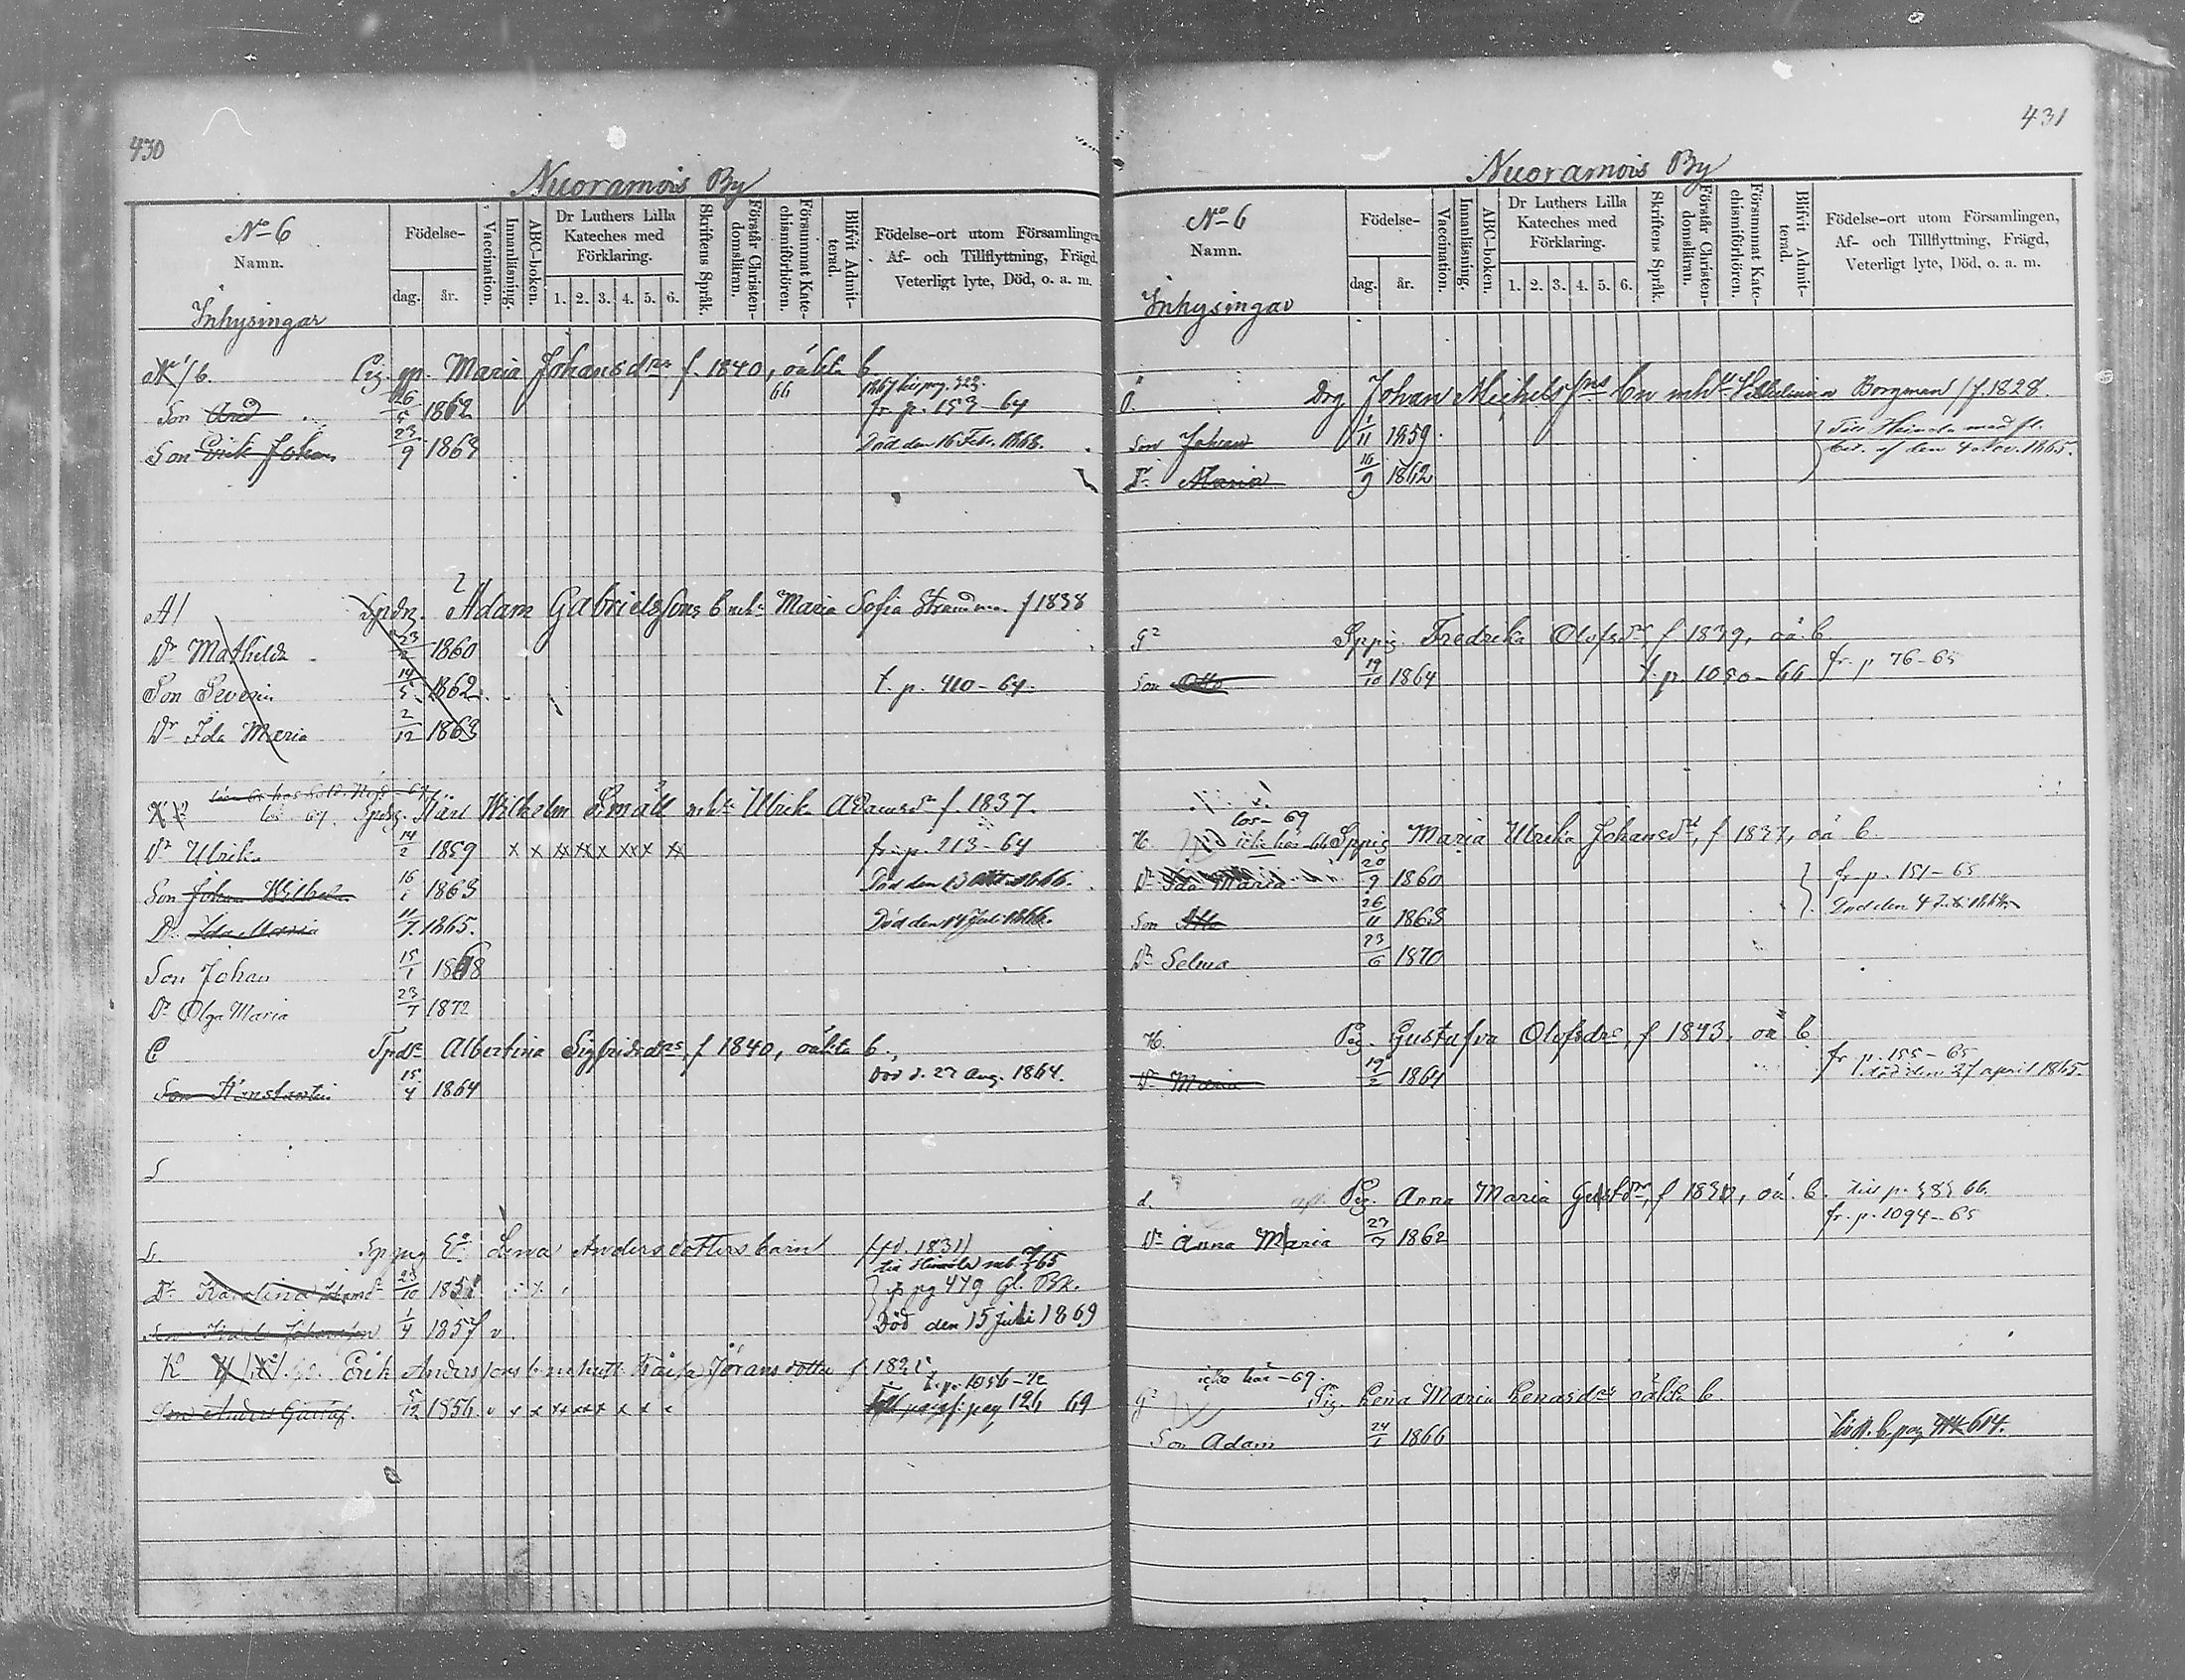 430
Nuoramois By
No 6
Namn.
Inhysingar
Födelse-
dag.
år.
Vaccination.
Innanläsning.
ABC-boken.
Dr Luthers Lilla
Kateches med
Förklaring.
1. 2. 3. 4. 5. 6.
Skriftens Språk.
Förstår Christen-
domsläran.
Försummat Kate-
chismiförhören.
Blifvit Admit-
terad.
Födelse-ort utom Församlingen,
Af- och Tillflyttning, Frägd,
Veterligt lyte, Död, o. a. m.
Maria Johansdrs f. 1840, oäkta b.
66
Son 1862 fr. p. 153-64
Son Erik Johan 23/9 1863 Död den 16 Feb. 1868.
A/ Spdr. Adam Gabrielssons b mh Maria Sofia f 1838
Dr Mathilda 1860
Son Severin 14/5 1862 t. p. 410-64.
Dr Ida Maria 2/12 1863
Wilhelm Småll mh Ulrika Adamsdr f. 1837.
Dr Ulrika 14/2 1859 x x xx xx x xx x xx fr. p. 213-64
Son Johan Wilhelm 16/1 1863 Död den 13 1866.
Dr Ida Maria 11/7 1865. Död den 14 Juli 1866.
Son Johan 15/1 1868
Dr Olga Maria 23/7 1872
C Albertina Sigfridsdrs f 1840, oäkta b.
Son Konstantin 15/4 1864 Död d. 27 Aug. 1864.
S
S. Lena Andersdotters barn (fd. 1831)
Dr Karolina 23/10 p pg 479 gl. Bk.
Son Johansson 1/4 1857 v Död den 15 Juli 1869
K Erik Anderssons b m hust. Kaisa Göransdotter f
t. p. 1056-72
Son Anders Gustaf. 5/12 1856. pag 126 69
431
Nuoramois By
No 6
Namn.
Inhysingar
Födelse-
dag.
år.
Vaccination.
Innanläsning.
ABC-boken.
Dr Luthers Lilla
Kateches med
Förklaring.
1. 2. 3. 4. 5. 6.
Skriftens Språk.
Förstår Christen-
domsläran.
Försummat Kate-
chismiförhören.
Blifvit Admit-
terad.
Födelse-ort utom Församlingen,
Af- och Tillflyttning, Frägd,
Veterligt lyte, Död, o. a. m.
Drg Johan Michelssns bn mh Wilhelmina Borgman f. 1828.
Son Johan 1/11 1859.
bet. af den 4 Nov. 1865.
Dr Maria 16/9 1862
G2 Sppig. Fredrika Olofsdrs f 1839, oä. b
fr. p 76-65
Son Otto 19/10 1864 t. p. 1050-66
los-69
H. Sppig Maria Ulrika Johansdr, f 1837, oä b.
Dr Ida Maria 20/9 1860 fr. p. 151-65
Son Otto 26/11 1863
Dr Selma 23/6 1870
H. Pig. Gustafva Olofsdrs, f 1843. oä b
fr. p. 155-65
Dr Maria 19/2 1864 död den 27 april 1865.
d. Pig. Anna Maria Gustdrs, f oä. b.
fr. p. 1094-65
Dr Anna Maria 27/7 1862
icke här-69.
G2 Pig. Lena Maria Lenasdrs oäkta b.
Son Adam 24/1 1866 614.